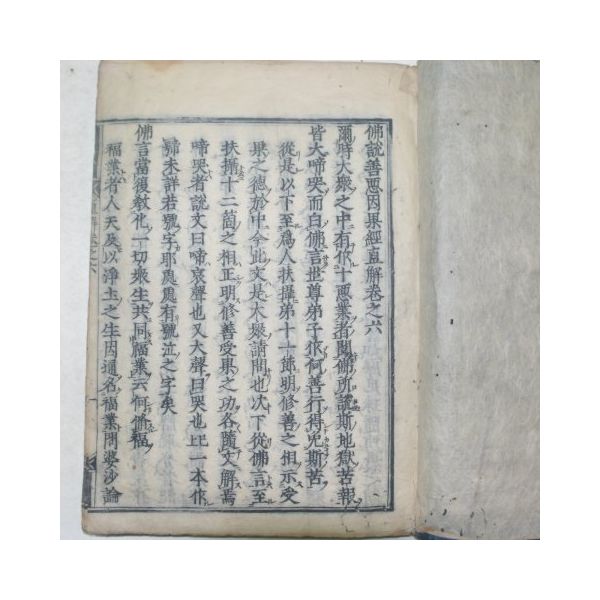 佛說善惡因果經直解卷之六
爾時大衆之中有作十惡業者聞佛所說斯地獄苦報
皆大啼哭而白佛言世尊弟子作何善行得免斯苦
從是以下至爲人扶攝第十十節明修善之相示受
果之德於中今此文是大衆請問也次下從佛言至
扶攝十二箇之相正明修善受果之功各隨文解焉
啼哭者說文曰啼哀聲也又大聲曰哭也比一本作
歸未詳若號字耶處處有號泣之字矣
佛言當復教化一切衆生共同福業云何脩福
福業者人天及以淨土之生因通名福業問婆沙論
直解卷之六